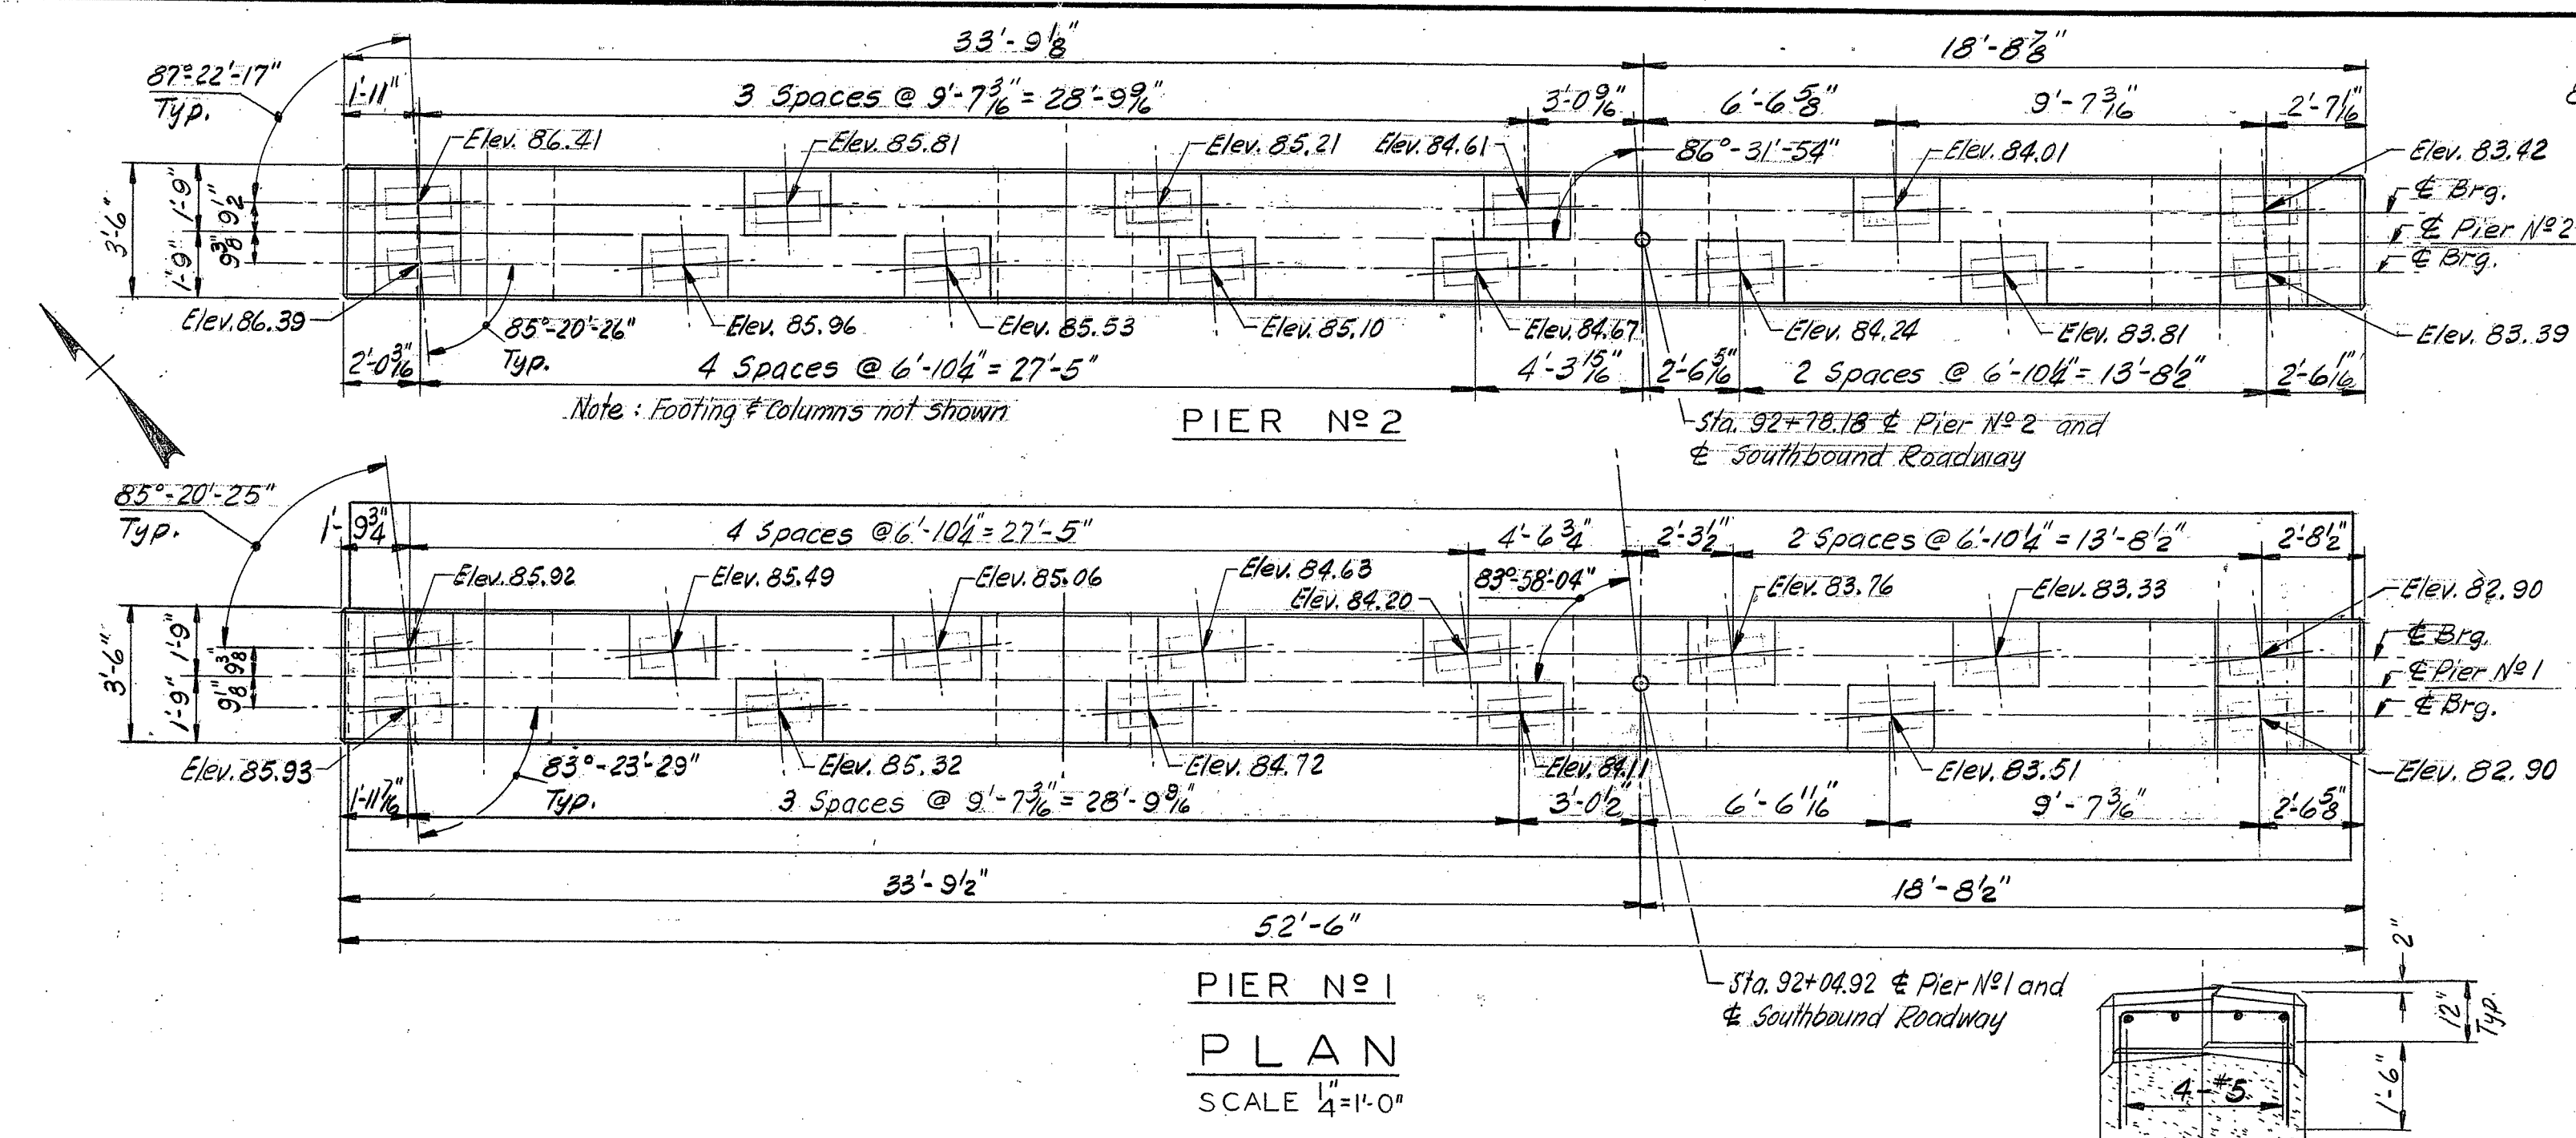 33'-9⅛"
18'-8⅞"
87°-22'-17"
Typ.
1'-11"
3 Spaces @ 9'-7 3/16" = 28'-9 9/16"
3'-0 9/16"
6'-6⅝"
9'-7 3/16"
2'-7 1/16"
8
Elev. 86.41
Elev. 85.81
Elev. 85.21
Elev. 84.61
86°-31'-54"
Elev. 84.01
Elev. 83.42
3'-6"
1'-9"
1'-9"
9½"
9⅜"
℄ Brg.
℄ Pier Nº 2
℄ Brg.
Elev. 86.39
85°-20'-26"
Typ.
Elev. 85.96
Elev. 85.53
Elev. 85.10
Elev. 84.67
Elev. 84.24
Elev. 83.81
Elev. 83.39
2'-0 3/16"
4 Spaces @ 6'-10¼" = 27'-5"
4'-3 15/16"
2'-6 5/16"
2 Spaces @ 6'-10¼" = 13'-8½"
2'-6 1/16"
Note : Footing & Columns not shown
PIER Nº 2
Sta. 92+78.18 ℄ Pier Nº 2 and
℄ Southbound Roadway
85°-20'-25"
Typ.
1'-9¾"
4 Spaces @ 6'-10¼" = 27'-5"
4'-6¾"
2'-3½"
2 Spaces @ 6'-10¼" = 13'-8½"
2'-8½"
Elev. 85.92
Elev. 85.49
Elev. 85.06
Elev. 84.63
Elev. 84.20
83°-58'-04"
Elev. 83.76
Elev. 83.33
Elev. 82.90
3'-6"
1'-9"
1'-9"
9⅜"
9⅛"
℄ Brg.
℄ Pier Nº 1
℄ Brg.
Elev. 85.93
83°-23'-29"
Typ.
Elev. 85.32
Elev. 84.72
Elev. 84.11
Elev. 83.51
Elev. 82.90
1'-11 7/16"
3 Spaces @ 9'-7 3/16" = 28'-9 9/16"
3'-0½"
6'-6 11/16"
9'-7 3/16"
2'-6⅝"
33'-9½"
18'-8½"
52'-6"
PIER Nº 1
Sta. 92+04.92 ℄ Pier Nº 1 and
℄ Southbound Roadway
PLAN
SCALE ¼"=1'-0"
2"
12"
Typ.
1'-6"
4-#5